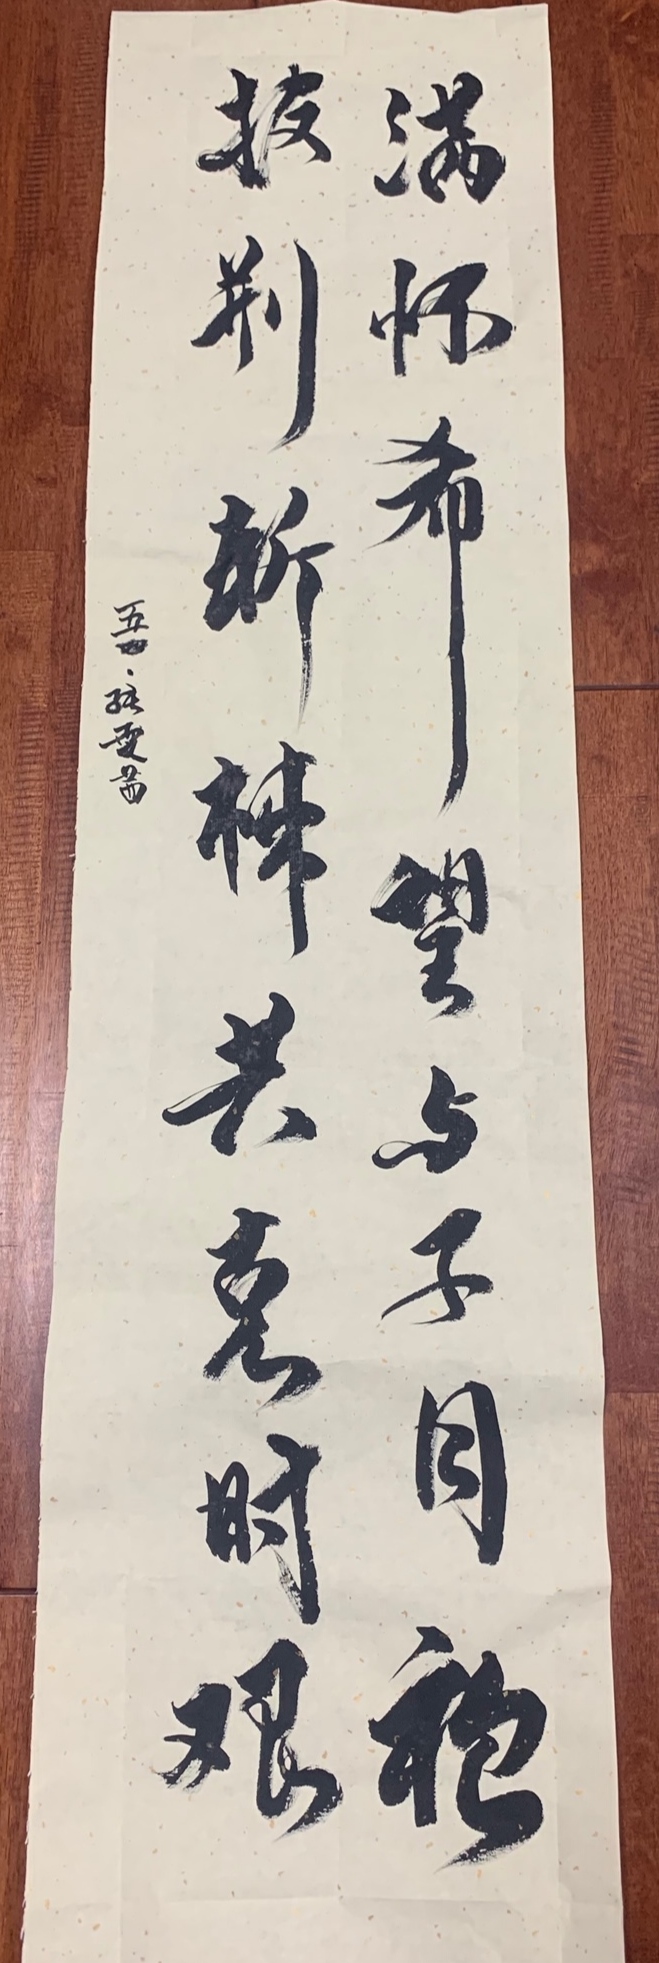 满怀希望与子同袍
披荆斩棘共克时艰
五四